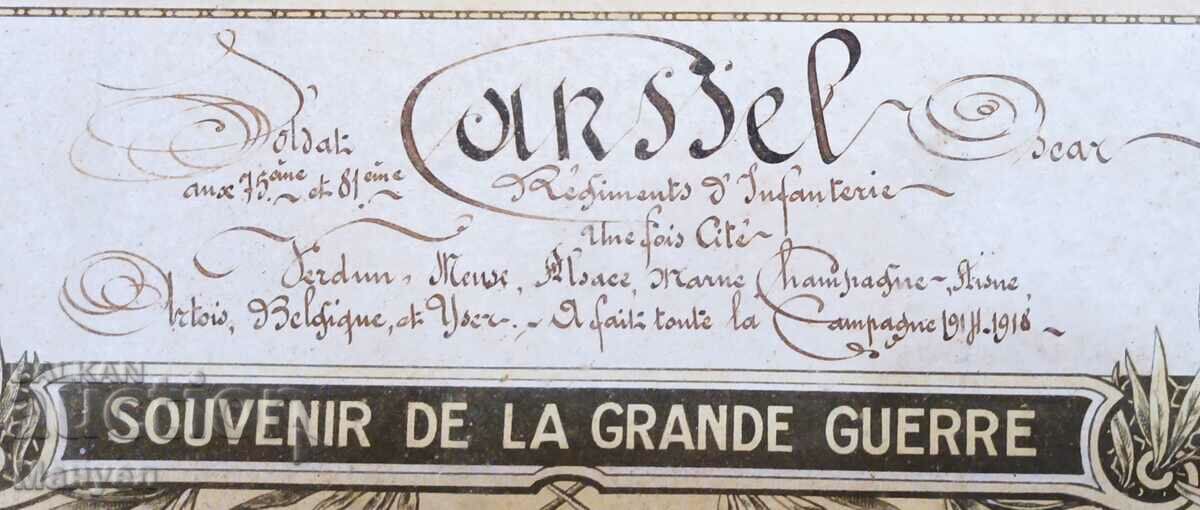 Soldat Carssel Oscar
aux 75ème et 81ème Régiments d'Infanterie
Une fois Cité
Verdun, Meuse, Alsace, Marne Champagne, Aisne
Artois, Belgique, et Yser. A fait toute la Campagne 1914-1918
SOUVENIR DE LA GRANDE GUERRE
BALKAN
Mauyen